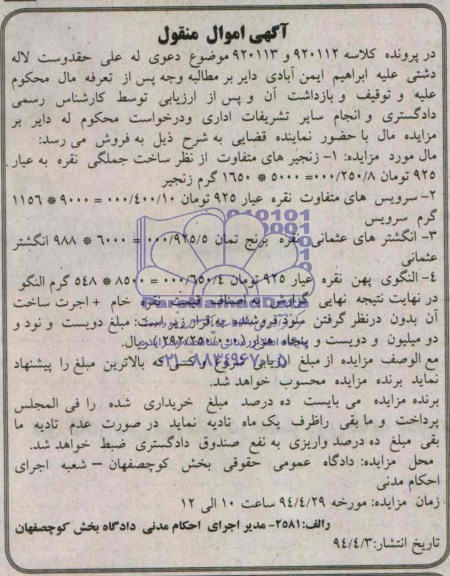 آگهی اموال منقول
در پرونده کلاسه ۹۲۰۱۱۲ و ۹۲۰۱۱۳ موضوع دعوی له علی حقدوست لاله
دشتی علیه ابراهیم ایمن آبادی دایر بر مطالبه وجه پس از تعرفه مال محکوم
علیه و توقیف و بازداشت آن و پس از ارزیابی توسط کارشناس رسمی
دادگستری و انجام سایر تشریفات اداری ودرخواست محکوم له دایر بر
مزایده مال با حضور نماینده قضایی به شرح ذیل به فروش می رسد:
مال مورد مزایده: ۱- زنجیر های متفاوت از نظر ساخت جملگی نقره به عیار
۹۲۵ تومان ۰۰۰/۲۵۰/۸= ۵۰۰۰ * ۱۶۵۰ گرم زنجیر
۲- سرویس های متفاوت نقره عیار ۹۲۵ تومان ۰۰۰/۴۰۰/۱۰= ۹۰۰۰ * ۱۱۵۶
گرم سرویس
۳- انگشتر های عثمانی نقره برنج تمان ۰۰۰/۹۲۵/۵= ۶۰۰۰ * ۹۸۸ انگشتر
عثمانی
۴- النگوی پهن نقره عیار ۹۲۵ تومان ۰۰۰/۶۵۰/۴= ۸۵۰۰ * ۵۴۸ گرم النگو
در نهایت نتیجه نهایی گزارش به قیمت نقره خام + اجرت ساخت
آن بدون درنظر گرفتن سود فروشنده به قرار زیر است: مبلغ دویست و نود و
دو میلیون و دویست و پنجاه هزار (۲۹۲/۲۵۰/۰۰۰) ریال.
مع الوصف مزایده از مبلغ ارزیابی شروع و کسی که بالاترین مبلغ را پیشنهاد
نماید برنده مزایده محسوب خواهد شد.
برنده مزایده می بایست ده درصد مبلغ خریداری شده را فی المجلس
پرداخت و ما بقی راظرف یک ماه تادیه نماید در صورت عدم تادیه ما
بقی مبلغ ده درصد واریزی به نفع صندوق دادگستری ضبط خواهد شد.
محل مزایده: دادگاه عمومی حقوقی بخش کوچصفهان – شعبه اجرای
احکام مدنی
زمان مزایده: مورخه ۹۴/۴/۲۹ ساعت ۱۰ الی ۱۲
رالف:۲۵۸۱- مدیر اجرای احکام مدنی دادگاه بخش کوچصفهان
تاریخ انتشار:۹۴/۴/۳